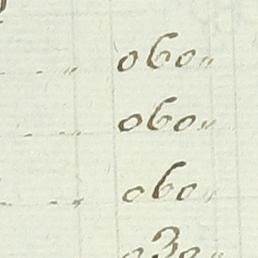 060"
060"
060"
030"